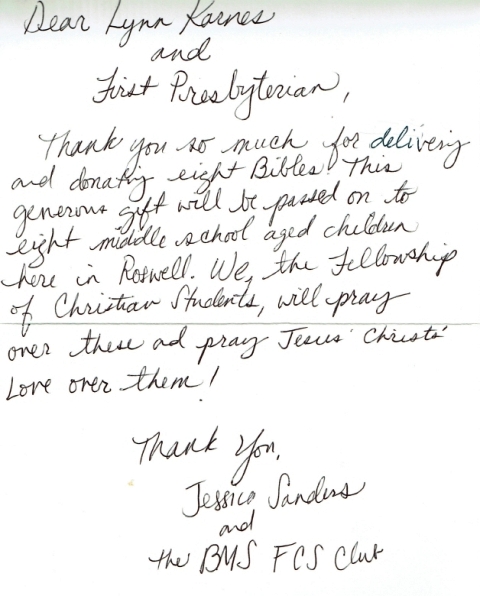 Dear Lynn Karnes
and
First Presbyterian,
Thank you so much for delivering
and donating eight Bibles! This
generous gift will be passed on to
eight middle school aged children
here in Roswell. We, the Fellowship
of Christian Students, will pray
over these ad pray Jesus' Christs'
Love over them!
Thank You,
Jessica Sanders
and
the BMS FCS Club